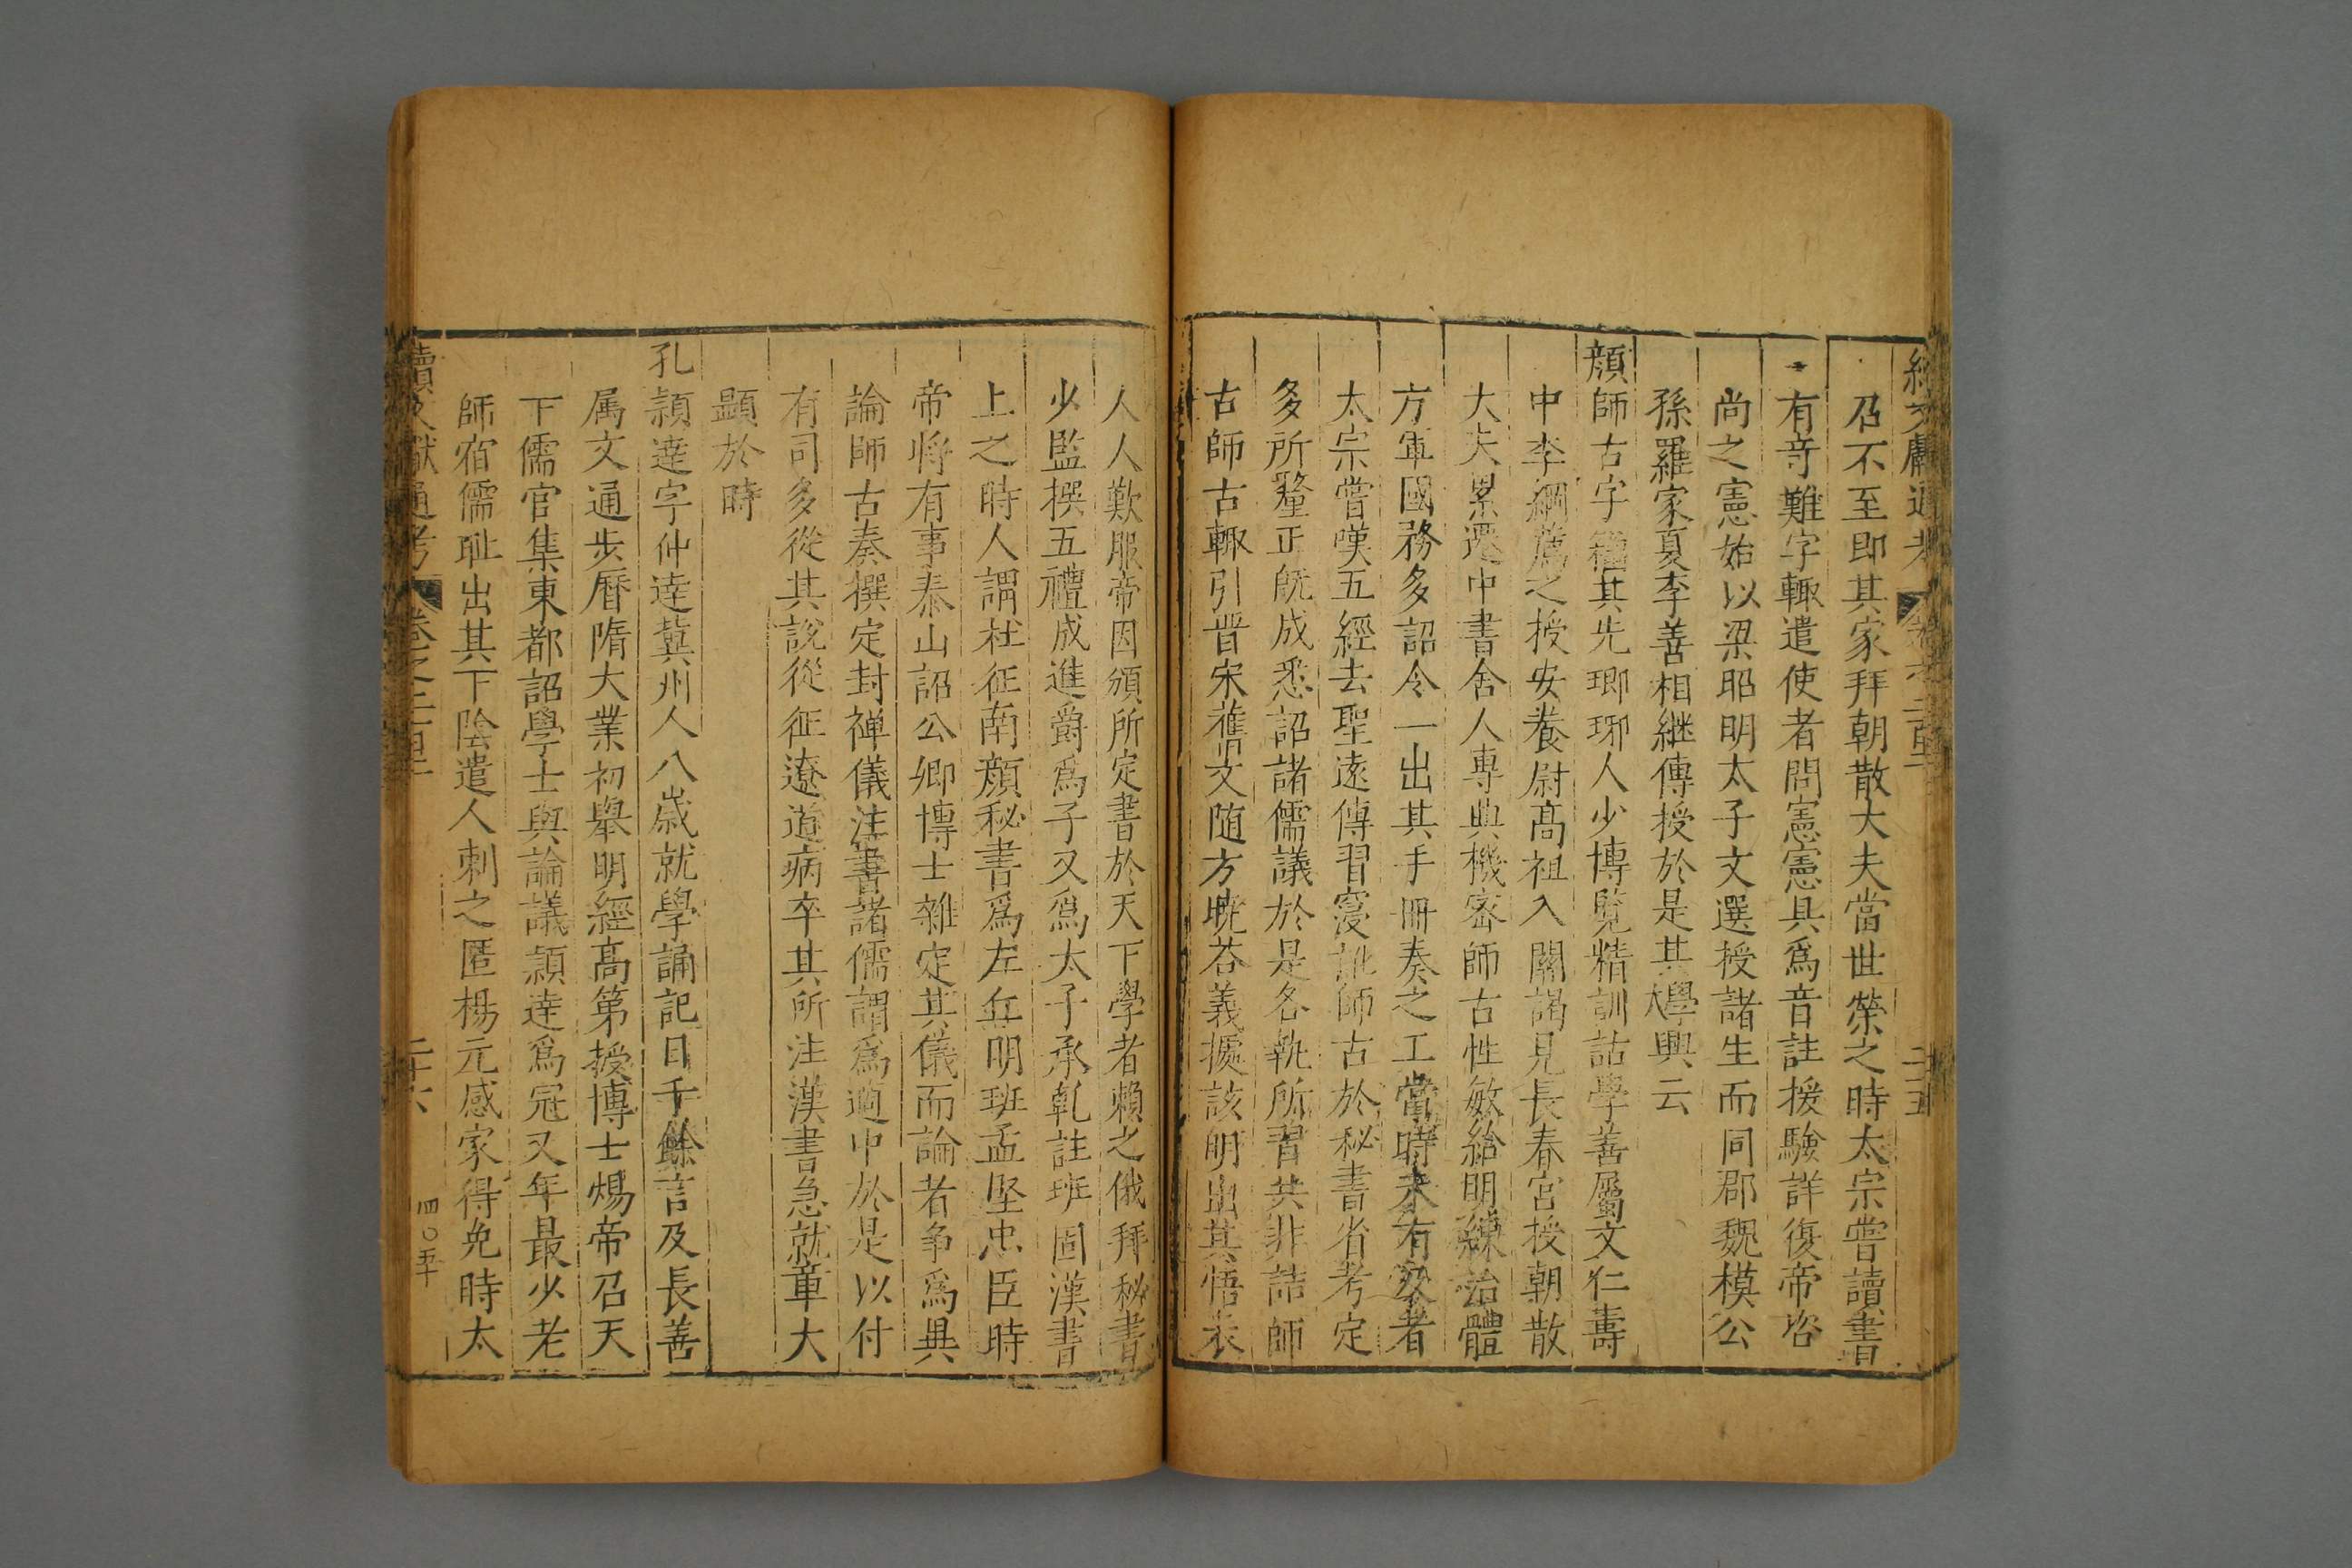 召不至即其家拜朝散大夫當世榮之時太宗嘗讀書
有竒難字輙遣使者問憲憲具爲音註援驗詳復帝咨
尚之憲始以梁昭明太子文選授諸生而同郡魏模公
孫羅家夏李善相繼傳授於是其學大興云
顏師古字籀其先瑯琊人少博覽精訓詁學善屬文仁壽
中李綱薦之授安養尉高祖入關謁見長春宮授朝散
大夫累遷中書舍人專典機密師古性敏給明練治體
方軍國務多詔令一出其手冊奏之工當時未有及者
太宗嘗嘆五經去聖遠傳習寖訛師古於秘書省考定
多所釐正旣成悉詔諸儒議於是各執所習共非詰師
古師古輙引晋宋舊文随方曉荅義據該明出其悟表
人人歎服帝因頒所定書於天下學者賴之俄拜秘書
少監撰五禮成進爵爲子又爲太子承乹註班固漢書
上之時人謂杜征南顏秘書爲左丘明班孟堅忠臣時
帝將有事泰山詔公卿博士雜定其儀而論者争爲異
論師古奏撰定封禅儀注書諸儒謂爲適中於是以付
有司多從其說從征遼道病卒其所注漢書急就章大
顯於時
孔頴達字仲達冀州人八歲就學誦記日千餘言及長善
属文通步曆隋大業初舉明經高第授博士煬帝召天
下儒官集東都詔學士與論議頴達爲冠又年最少老
師宿儒耻出其下陰遣人刺之匿楊元感家得免時太
續文獻通考
二十六
四〇五